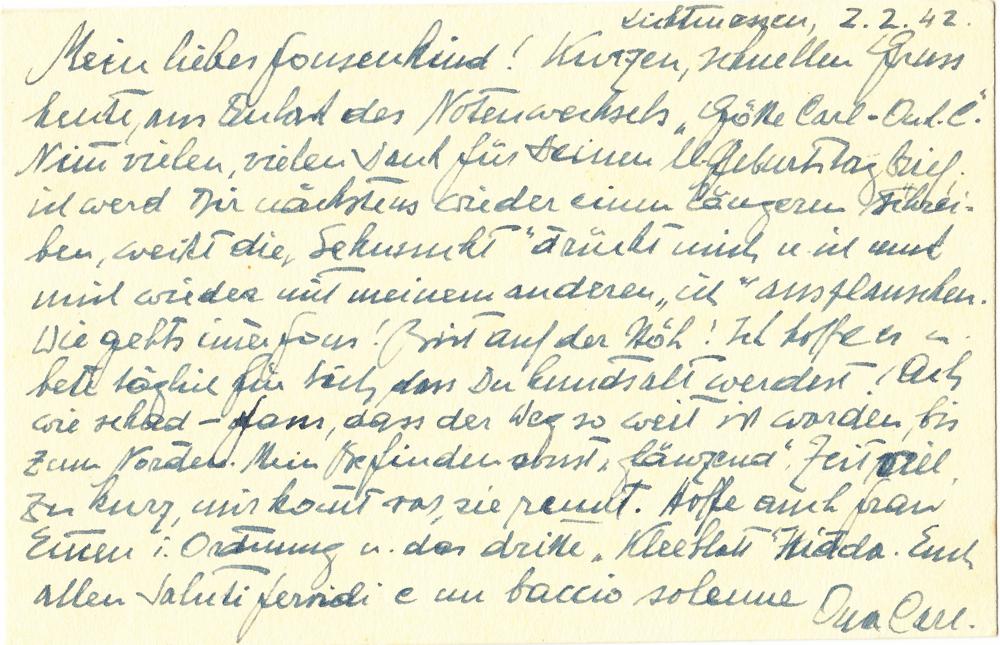 Lichtmessen, 2.2.42.
Mein liebes Fonsenkind! Kurzen, schnellen Gruss
heute, aus Anlass des Notenwechsels „Götte Carl-On.C."
Nim vielen, vielen Dank für Deinen lb. Geburtstagbrief.
ich werd Dir nächstens wieder einen längeren Schrei-
ben, weisst die „Sehnsucht" drückt mich u. ich muss
mich wieder mit meinem anderen „ich" ausplauschen.
Wie gehts imer Fons! Bist auf der Höh! Ich hoffe es u.
bete täglich für Dich, dass Du hundsalt werdest! Ach
wie schad – Fons, dass der Weg so weit ist worden, bis
zum Norden. Mein Befinden sonst „glänzend". Zeit viel
zu kurz, mir komt vor, sie rennt. Hoffe auch Frau
i. Ordnung u. das dritte „Kleeblatt" Hidda. Euch
allen Saluti fervidi e un baccio solenne
Carl.